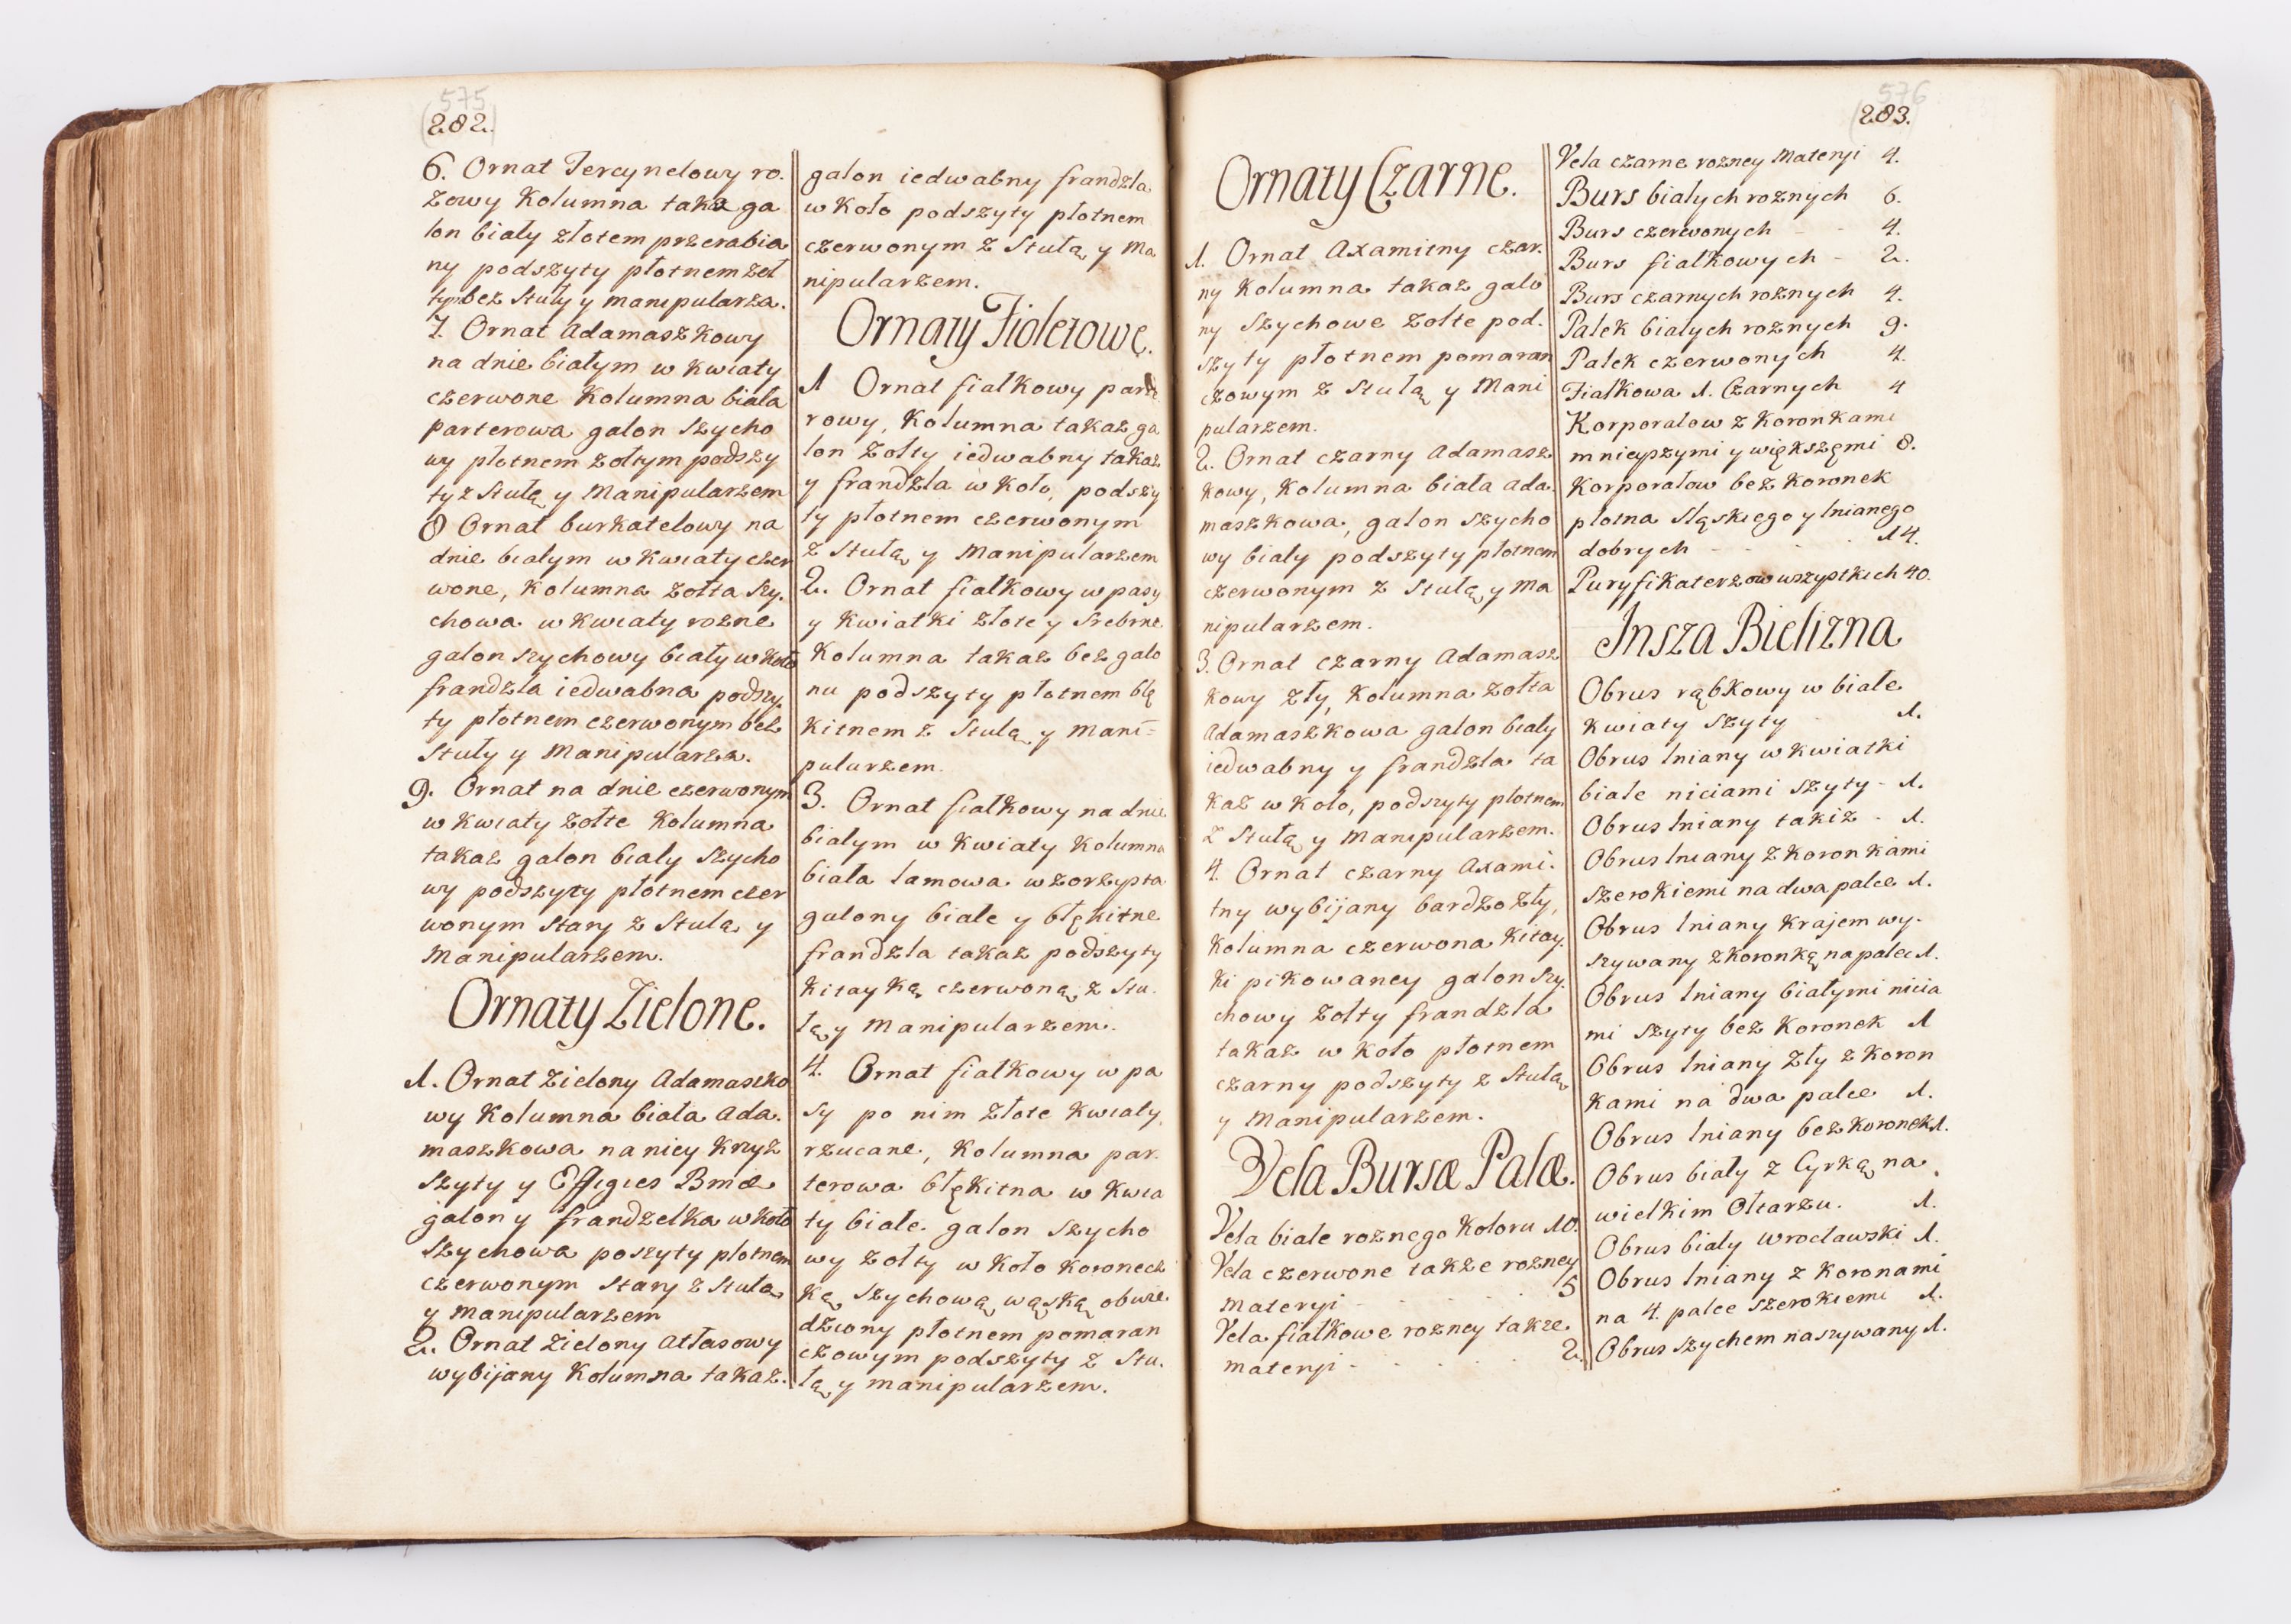 575
282.
6. Ornat Tercynelowy ro.
zowy Kolumna taka ga
lon biały złotem przerabia
ny podszyty płotnem żeł
tym bez Stuły y manipularza.
7. Ornat Adamaszkowy
na dnie białym w kwiaty
czerwone Kolumna biała
parterowa galon Szycho
wy płotnem żołtym podszy
ty z Stułą y Manipularzem
8 Ornat burkatelowy na
dnie białym w kwiaty czer
wone, Kolumna żołta Szy.
chowa w kwiaty rożne
galon szychowy biały w koło
frandzla iedwabna podszy.
ty płotnem czerwonym bez
Stuły y Manipularza.
9. Ornat na dnie czerwonym
w kwiaty żołte Kolumna
takaż galon biały Szycho
wy podszyty płotnem czer
wonym Stary z Stułą y
Manipularzem.
Ornaty Zielone.
1. Ornat Zielony Adamaszko
wy Kolumna biała Ada.
maszkowa na niey Krzyż
Szyty y Effigies Bmæ
galony frandzelka w koło
Szychowa poszyty płotnem
czerwonym Stary z Stułą
y Manipularzem
2. Ornat Zielony Atłasowy
wybijany Kolumna takaż.
galon iedwabny frandzla
w koło podszyty płotnem
czerwonym z Stułą y Ma
nipularzem.
Ornaty Fioletowe.
1 Ornat fiałkowy parte
rowy, Kolumna takaż ga
lon Żołty iedwabny takaż
y frandzla w koło, podszy
ty płotnem czerwonym
z Stułą y Manipularzem
2. Ornat fiałkowy w pasy
y Kwiatki złote y Srebrne
Kolumna takaż bez galo
nu podszyty płotnem błę
kitnem z Stułą y Mani=
pularzem.
3. Ornat fiałkowy na dnie
białym w Kwiaty Kolumna
biała lamowa wzorzysta
galony białe y błękitne
frandzla takaż podszyty
kitayką czerwoną z Stu.
łą y Manipularzem.
4. Ornat fiałkowy w pa
sy po nim złote kwiaty
rzucane, Kolumna par.
terowa błękitna w kwia
ty białe. galon Szycho
wy żołty w koło koronecz
ką Szychową wąską obwie
dziony płotnem pomaran
czowym podszyty z Stu.
łą y manipularzem.
576
283.
Ornaty Czarne.
1. Ornat Axamitny czar.
ny Kolumna takaż galo
ny Szychowe żołte pod.
szyty płotnem pomaran
czowym z Stułą y Mani
pularzem.
2. Ornat czarny Adamasz
kowy, Kolumna biała Ada.
maszkowa, galon Szycho
wy biały podszyty płotnem
czerwonym z Stułą y Ma
nipularzem.
3. Ornat czarny Adamasz
kowy zły, Kolumna żołta
Adamaszkowa galon biały
iedwabny y frandzla ta
każ w koło, podszyty płotnem
z Stułą y Manipularzem.
4. Ornat czarny Axami.
tny wybijany bardzo zły,
Kolumna czerwona Kitay.
ki pikowaney galon Szy.
chowy żołty frandzla
takaż w koło płotnem
czarny podszyty z Stułą
y Manipularzem.
Vela Bursæ Palæ.
Vela białe rożnego Koloru 10.
Vela czerwone także rożney
materyi - - - - 5
Vela fiałkowe rożney także
materyi - - - - - 2.
Vela czarne rożney Materyi 4.
Burs białych rożnych 6.
Burs czerwonych - - 4.
Burs fiałkowych - 2.
Burs czarnych rożnych 4.
Palek białych rożnych 9.
Palek czerwonych 4.
Fiałkowa 1. Czarnych 4
Korporałow z Koronkami
mnieyszymi y większęmi 8.
Korporałow bez Koronek
płotna Sląskiego y lnianego
dobrych - - - - 14.
Puryfikaterzow wszystkich 40.
Jnsza Bielizna
Obrus rąbkowy w białe
kwiaty Szyty - 1.
Obrus lniany w kwiatki
białe niciami szyty - 1.
Obrus lniany takiż - 1.
Obrus lniany z Koronkami
szerokiemi na dwa palce 1.
Obrus lniany Krajem wy-
szywany z koronką na palec 1.
Obrus lniany białymi nicia
mi szyty bez Koronek 1
Obrus lniany zły z Koron
kami na dwa palce 1.
Obrus lniany bez koronek 1.
Obrus biały z Cyrką na
wielkim Ołtarzu. 1.
Obrus biały Wrocławski 1.
Obrus lniany z Koronami
na 4. palce szerokiemi 1.
Obrus szychem naszywany 1.